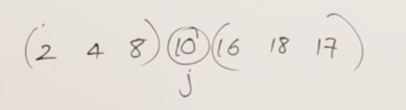 (2 4 8) 10 (16 18 17)
j